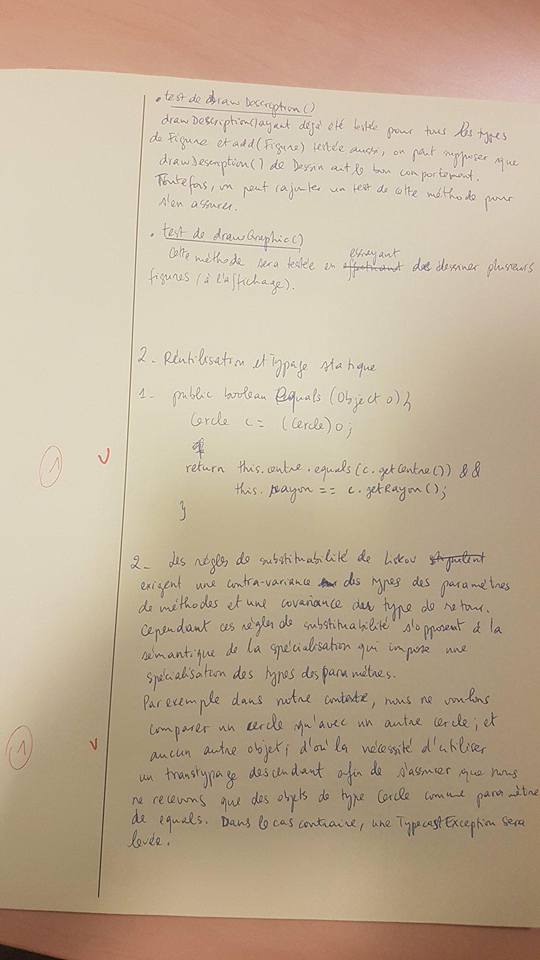 • test de drawDescription()
drawDescription() ayant déjà été testée pour tous les types
de Figure et add(Figure) testée aussi, on peut supposer que
drawDescription() de Dessin ait le bon comportement.
Toutefois, on peut rajouter un test de cette méthode pour
s'en assurer.
• test de drawGraphic()
essayant
Cette méthode sera testée en de dessiner plusieurs
figures (à l'affichage).
2 - Réutilisation et Typage statique
1 - public boolean Equals (Object o) {
Cercle c = (Cercle) o;
1 v
return this.centre.equals(c.getCentre()) &&
this.rayon == c.getRayon();
}
2 - Les règles de substituabilité de Liskov
exigent une contra-variance des types des paramètres
de méthodes et une covariance du type de retour.
Cependant ces règles de substituabilité s'opposent à la
sémantique de la spécialisation qui impose une
spécialisation des types des paramètres.
Par exemple dans notre contexte, nous ne voulons
comparer un cercle qu'avec un autre cercle, et
1 v
aucun autre objet; d'où la nécessité d'utiliser
un transtypage descendant afin de s'assurer que nous
ne recevons que des objets de type Cercle comme paramètre
de equals. Dans le cas contraire, une TypecastException sera
levée.